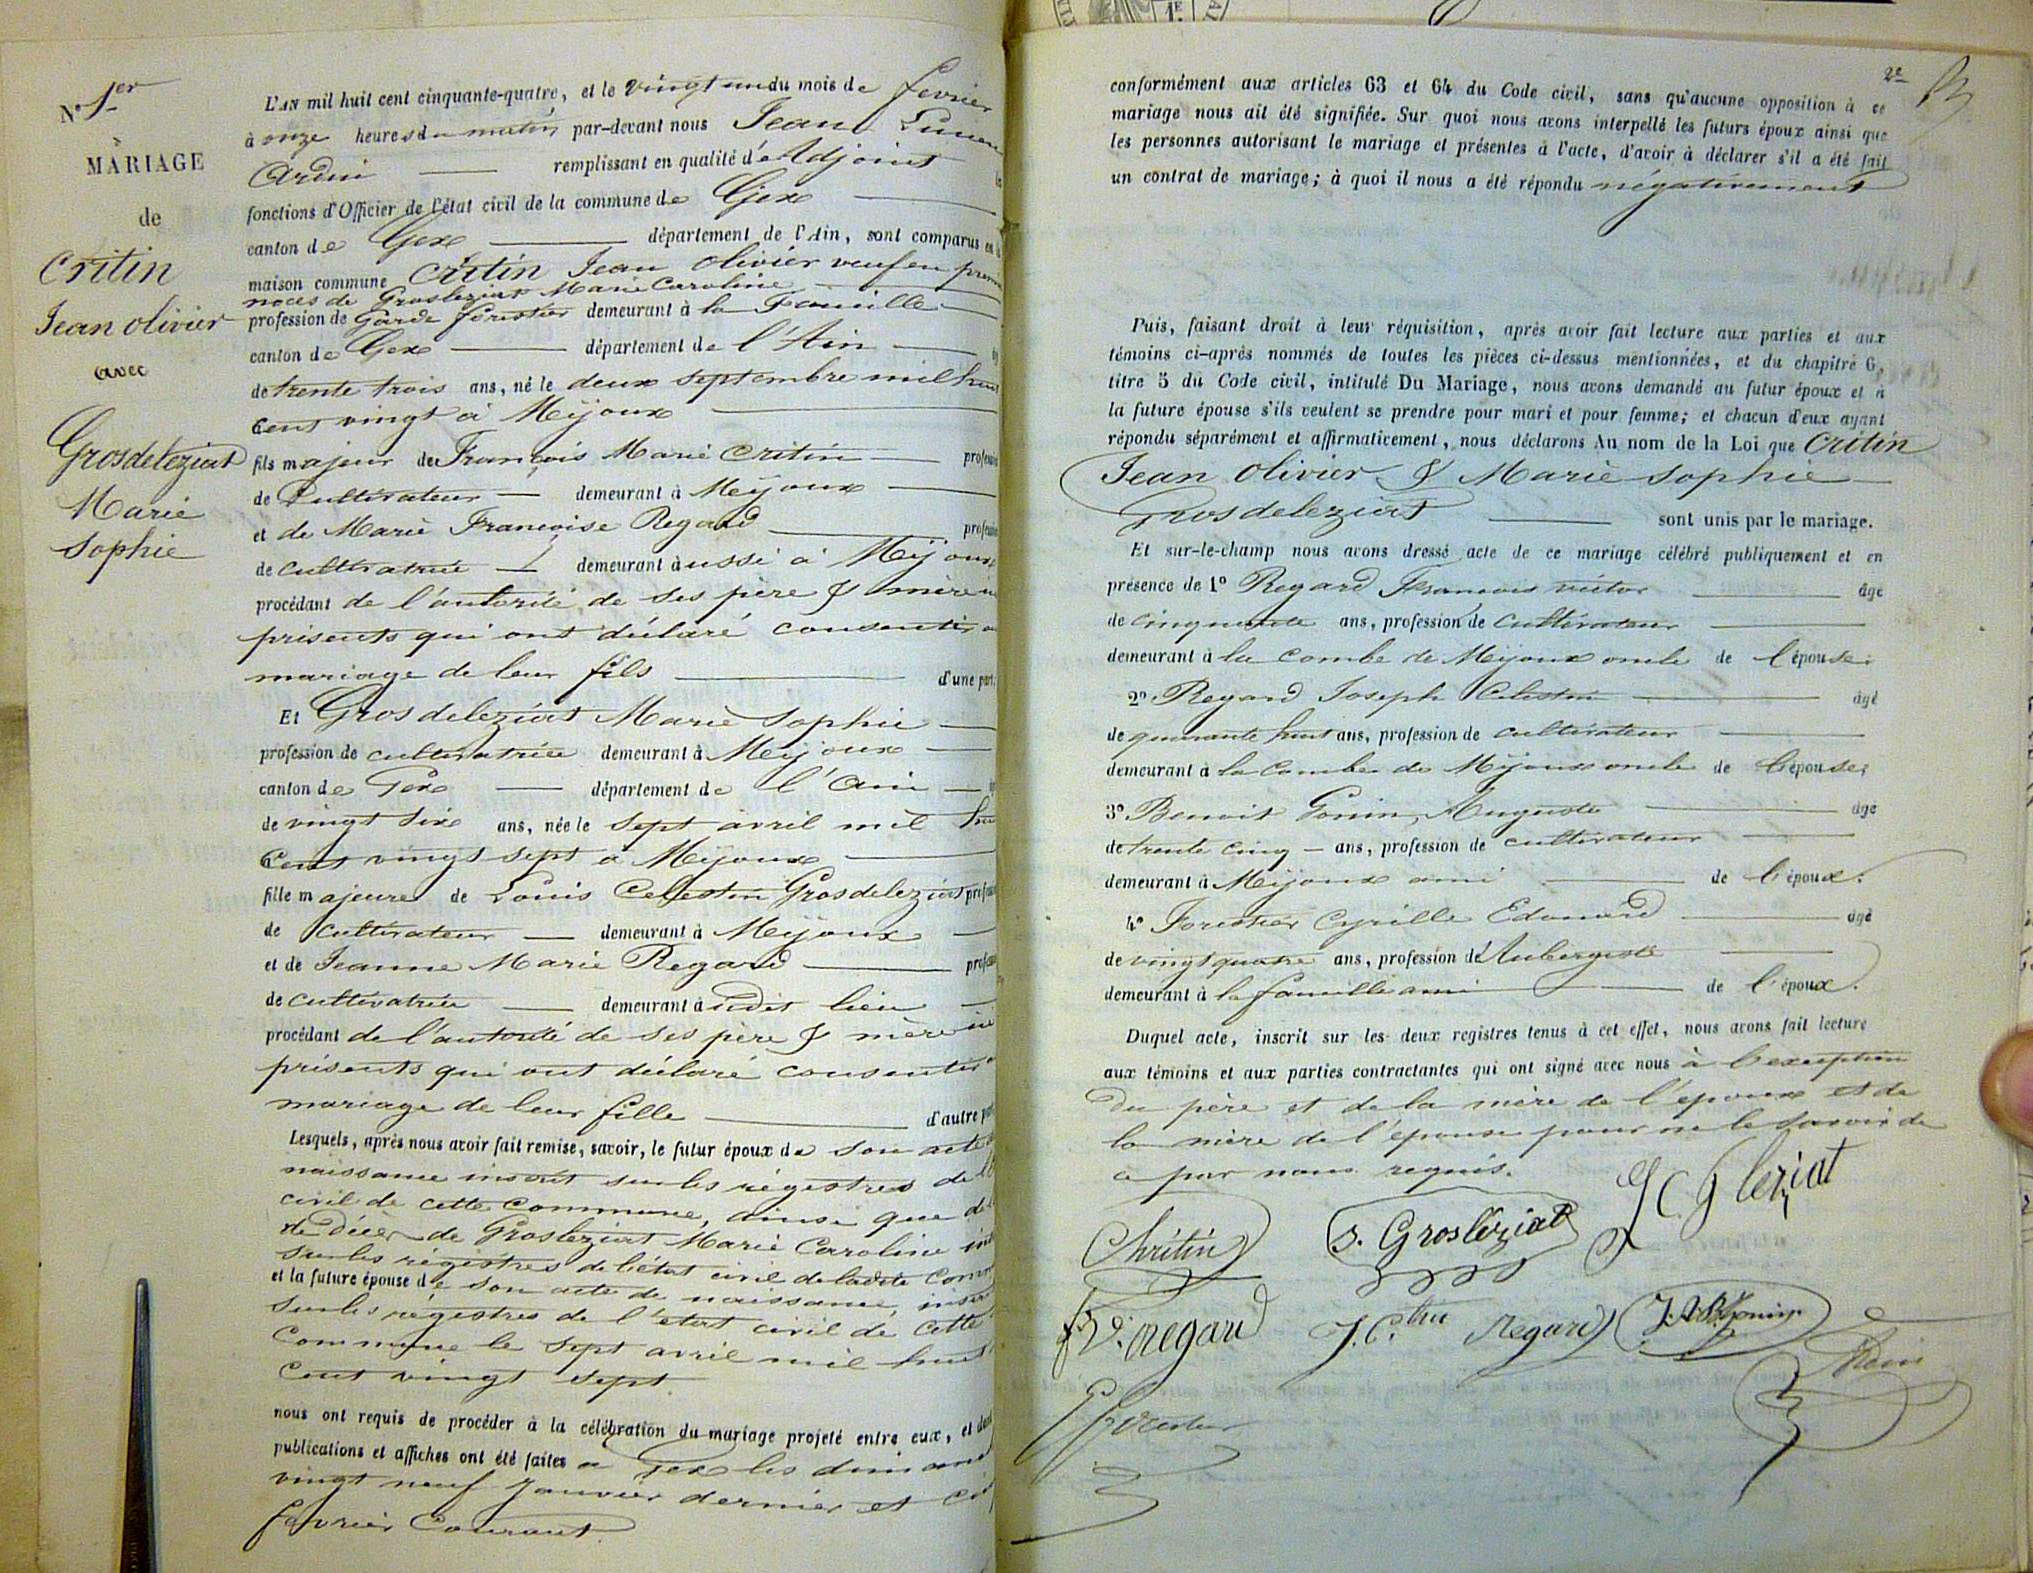 N° 1er
MARIAGE
de
Critin
Jean olivier
avec
Grosdeleziat
Marie
Sophie
L'AN mil huit cent cinquante-quatre, et le vingt un du mois de fevrier
à onze heures du matin par-devant nous Jean
Ardin remplissant en qualité d'Adjoint les
fonctions d'Officier de l'état civil de la commune de Gex
canton de Gex département de l'Ain, sont comparus en la
maison commune Critin Jean olivier veuf en
noces de Grosleziat Marie Caroline
profession de Garde forestier demeurant à la Faucille
canton de Gex département de l'Ain
de trente trois ans, né le deux septembre mil huit
cent vingt à Mijoux
fils majeur de François Marie Critin
de Cultivateur demeurant à Mijoux
et de Marie Françoise Regard
de cultivatrice demeurant aussi à Mijoux
procédant de l'autorité de ses père & mère
présents qui ont déclaré consentir au
mariage de leur fils d'une part;
Et Grosdeleziat Marie Sophie
profession de cultivatrice demeurant à Mijoux
canton de Gex département de l'Ain
de vingt six ans, née le sept avril mil huit
Cent vingt sept à Mijoux
fille majeure de Louis Celestin Grosdeleziat
de Cultivateur demeurant à Mijoux
et de Jeanne Marie Regard
de cultivatrice demeurant audit lieu
procédant de l'autorité de ses père & mère
présents qui ont déclaré consentir au
mariage de leur fille d'autre part
Lesquels, après nous avoir fait remise, savoir, le futur époux de son acte de
naissance inscrit sur les régistres de
civil de cette Commune, ainsi que
de Décès de Grosleziat Marie Caroline
sur les régistres de l'état civil de ladite
et la future épouse de son acte de naissance,
sur les régistres de l'état civil de cette
Commune le sept avril mil huit
Cent vingt sept
nous ont requis de procéder à la célébration du mariage projeté entre eux, et dont
publications et affiches ont été faites à Gex les dimanches
vingt neuf Janvier dernier et
fevrier Courant
2e
conformément aux articles 63 et 64 du Code civil, sans qu'aucune opposition à ce
mariage nous ait été signifiée. Sur quoi nous avons interpellé les futurs époux ainsi que
les personnes autorisant le mariage et présentes à l'acte, d'avoir à déclarer s'il a été fait
un contrat de mariage; à quoi il nous a été répondu négativement
Puis, faisant droit à leur réquisition, après avoir fait lecture aux parties et aux
témoins ci-après nommés de toutes les pièces ci-dessus mentionnées, et du chapitre 6,
titre 5 du Code civil, intitulé Du Mariage, nous avons demandé au futur époux et à
la future épouse s'ils veulent se prendre pour mari et pour femme; et chacun d'eux ayant
répondu séparément et affirmativement, nous déclarons Au nom de la Loi que Critin
Jean Olivier & Marie Sophie
Grosdeleziat sont unis par le mariage.
Et sur-le-champ nous avons dressé acte de ce mariage célébré publiquement et en
présence de 1° Regard François victor âgé
de cinquante ans, profession de cultivateur
demeurant à la Combe de Mijoux oncle de l'épouse;
2° Regard Joseph Celestin âgé
de quarante huit ans, profession de cultivateur
demeurant à la Combe de Mijoux oncle de l'épouse;
3° Benoit Gonin Auguste âgé
de trente cinq ans, profession de cultivateur
demeurant à Mijoux ami de l'époux.
4° Forestier Cyrille Edouard âgé
de vingt quatre ans, profession d'Aubergiste
demeurant à la faucille ami de l'époux.
Duquel acte, inscrit sur les deux registres tenus à cet effet, nous avons fait lecture
aux témoins et aux parties contractantes qui ont signé avec nous à l'exception
Du père et de la mère de l'époux et de
la mère de l'épouse pour ne le savoir de
ce par nous requis.
Chritin S. Grosléziat L C G leziat
f V. Regard J. C.tin Regard J. A. B. Gonin
Forestier Ardin